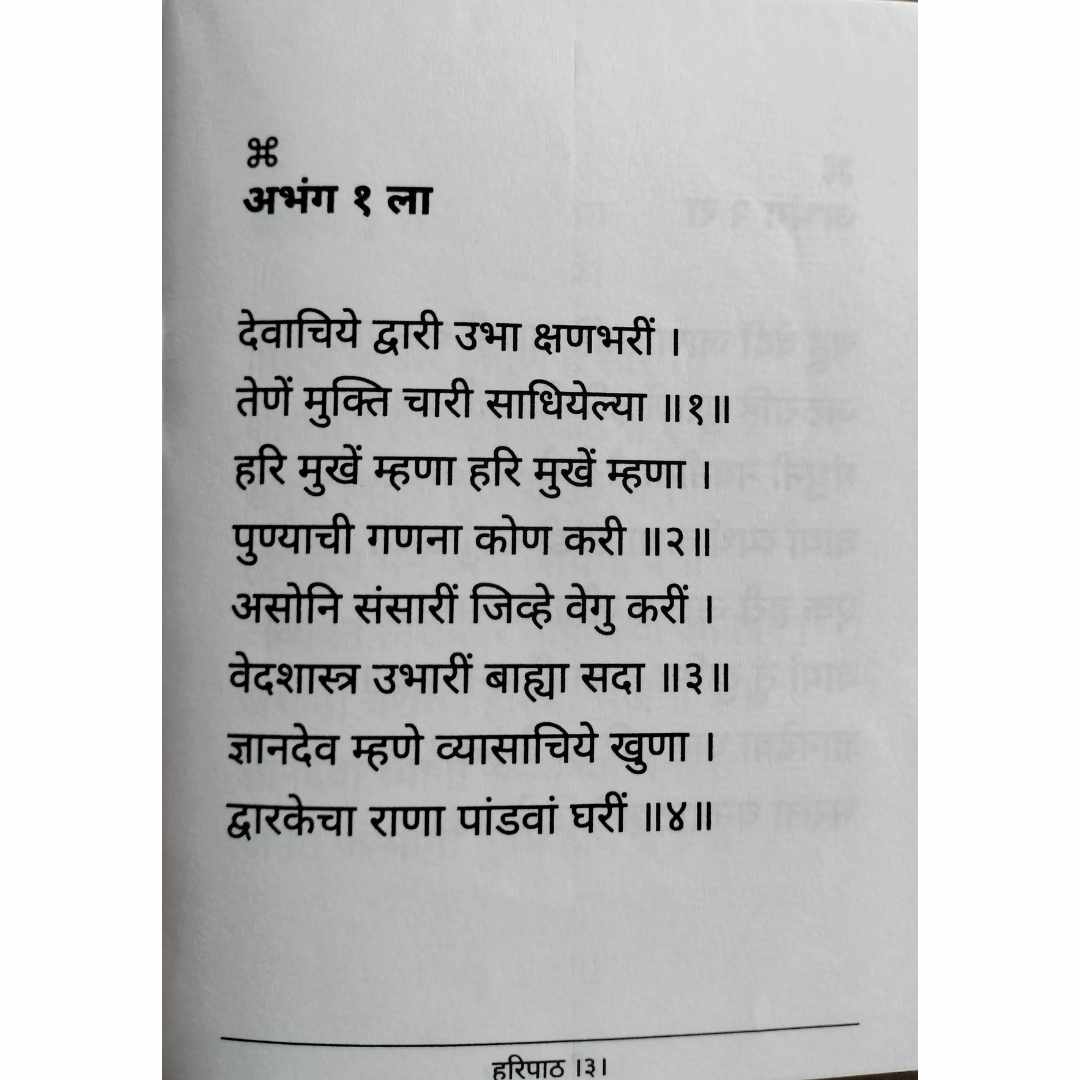 ⌘
अभंग १ ला
देवाचिये द्वारी उभा क्षणभरीं ।
तेणें मुक्ति चारी साधियेल्या ॥१॥
हरि मुखें म्हणा हरि मुखें म्हणा ।
पुण्याची गणना कोण करी ॥२॥
असोनि संसारीं जिव्हे वेगु करीं ।
वेदशास्त्र उभारीं बाह्या सदा ॥३॥
ज्ञानदेव म्हणे व्यासाचिये खुणा ।
द्वारकेचा राणा पांडवां घरीं ॥४॥
हरिपाठ ।३।